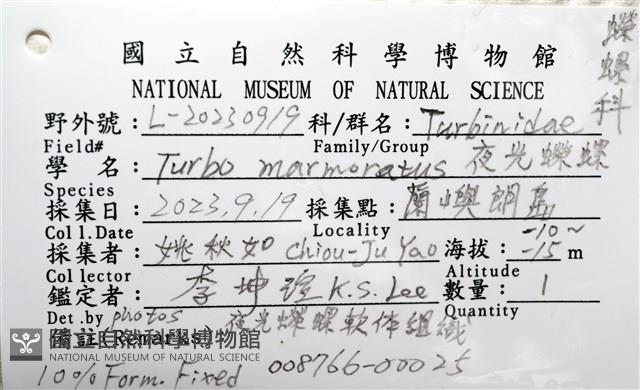 國立自然科學博物館
NATIONAL MUSEUM OF NATURAL SCIENCE
蠑螺科
野外號：L-20230919 科/群名：Turbinidae
Field# Family/Group
學名：Turbo marmoratus 夜光蠑螺
Species
採集日：2023.9.19 採集點：蘭嶼朗島
Coll.Date Locality
採集者：姚秋如 Chiou-Ju Yao 海拔：-10~-15 m
Collector Altitude
鑑定者：李坤瑄 K.S. Lee 數量：1
Det.by photos Quantity
備註/Remarks 夜光蠑螺軟体組織
國立自然科學博物館
NATIONAL MUSEUM OF NATURAL SCIENCE
10% Form. Fixed 008766-00025